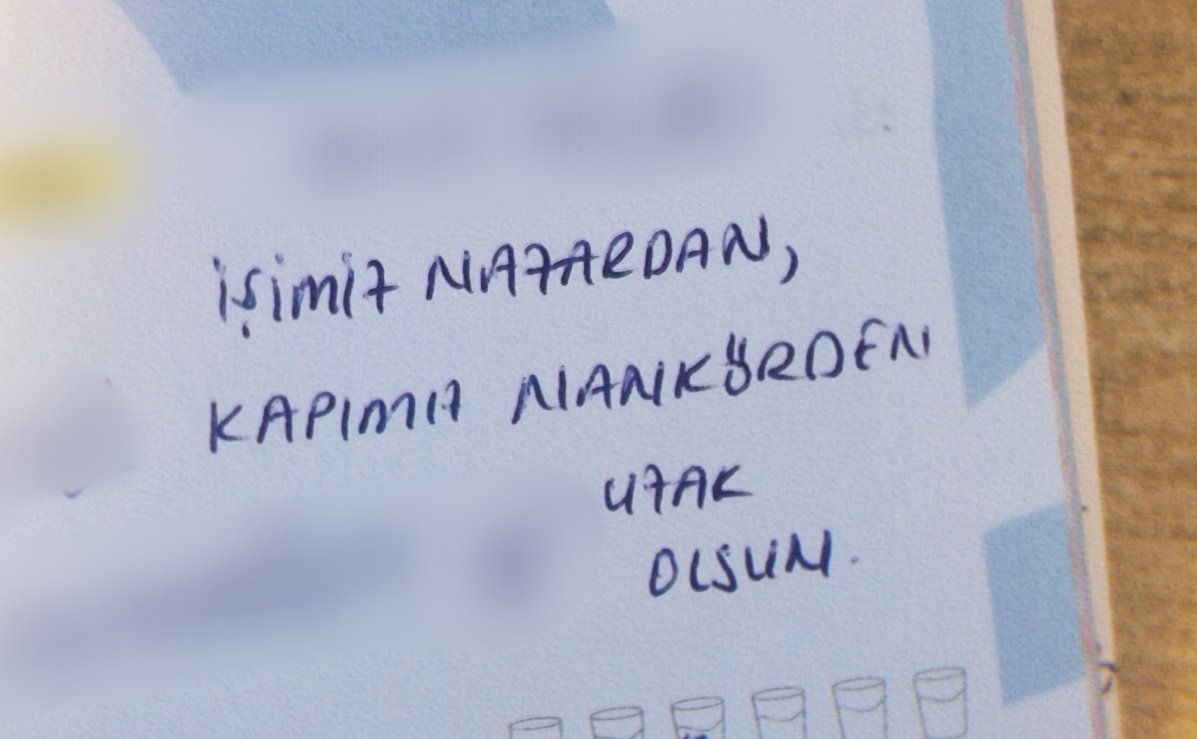 İŞİMİZ NAZARDAN,
KAPIMIZ NANKÖRDEN
UZAK
OLSUN.